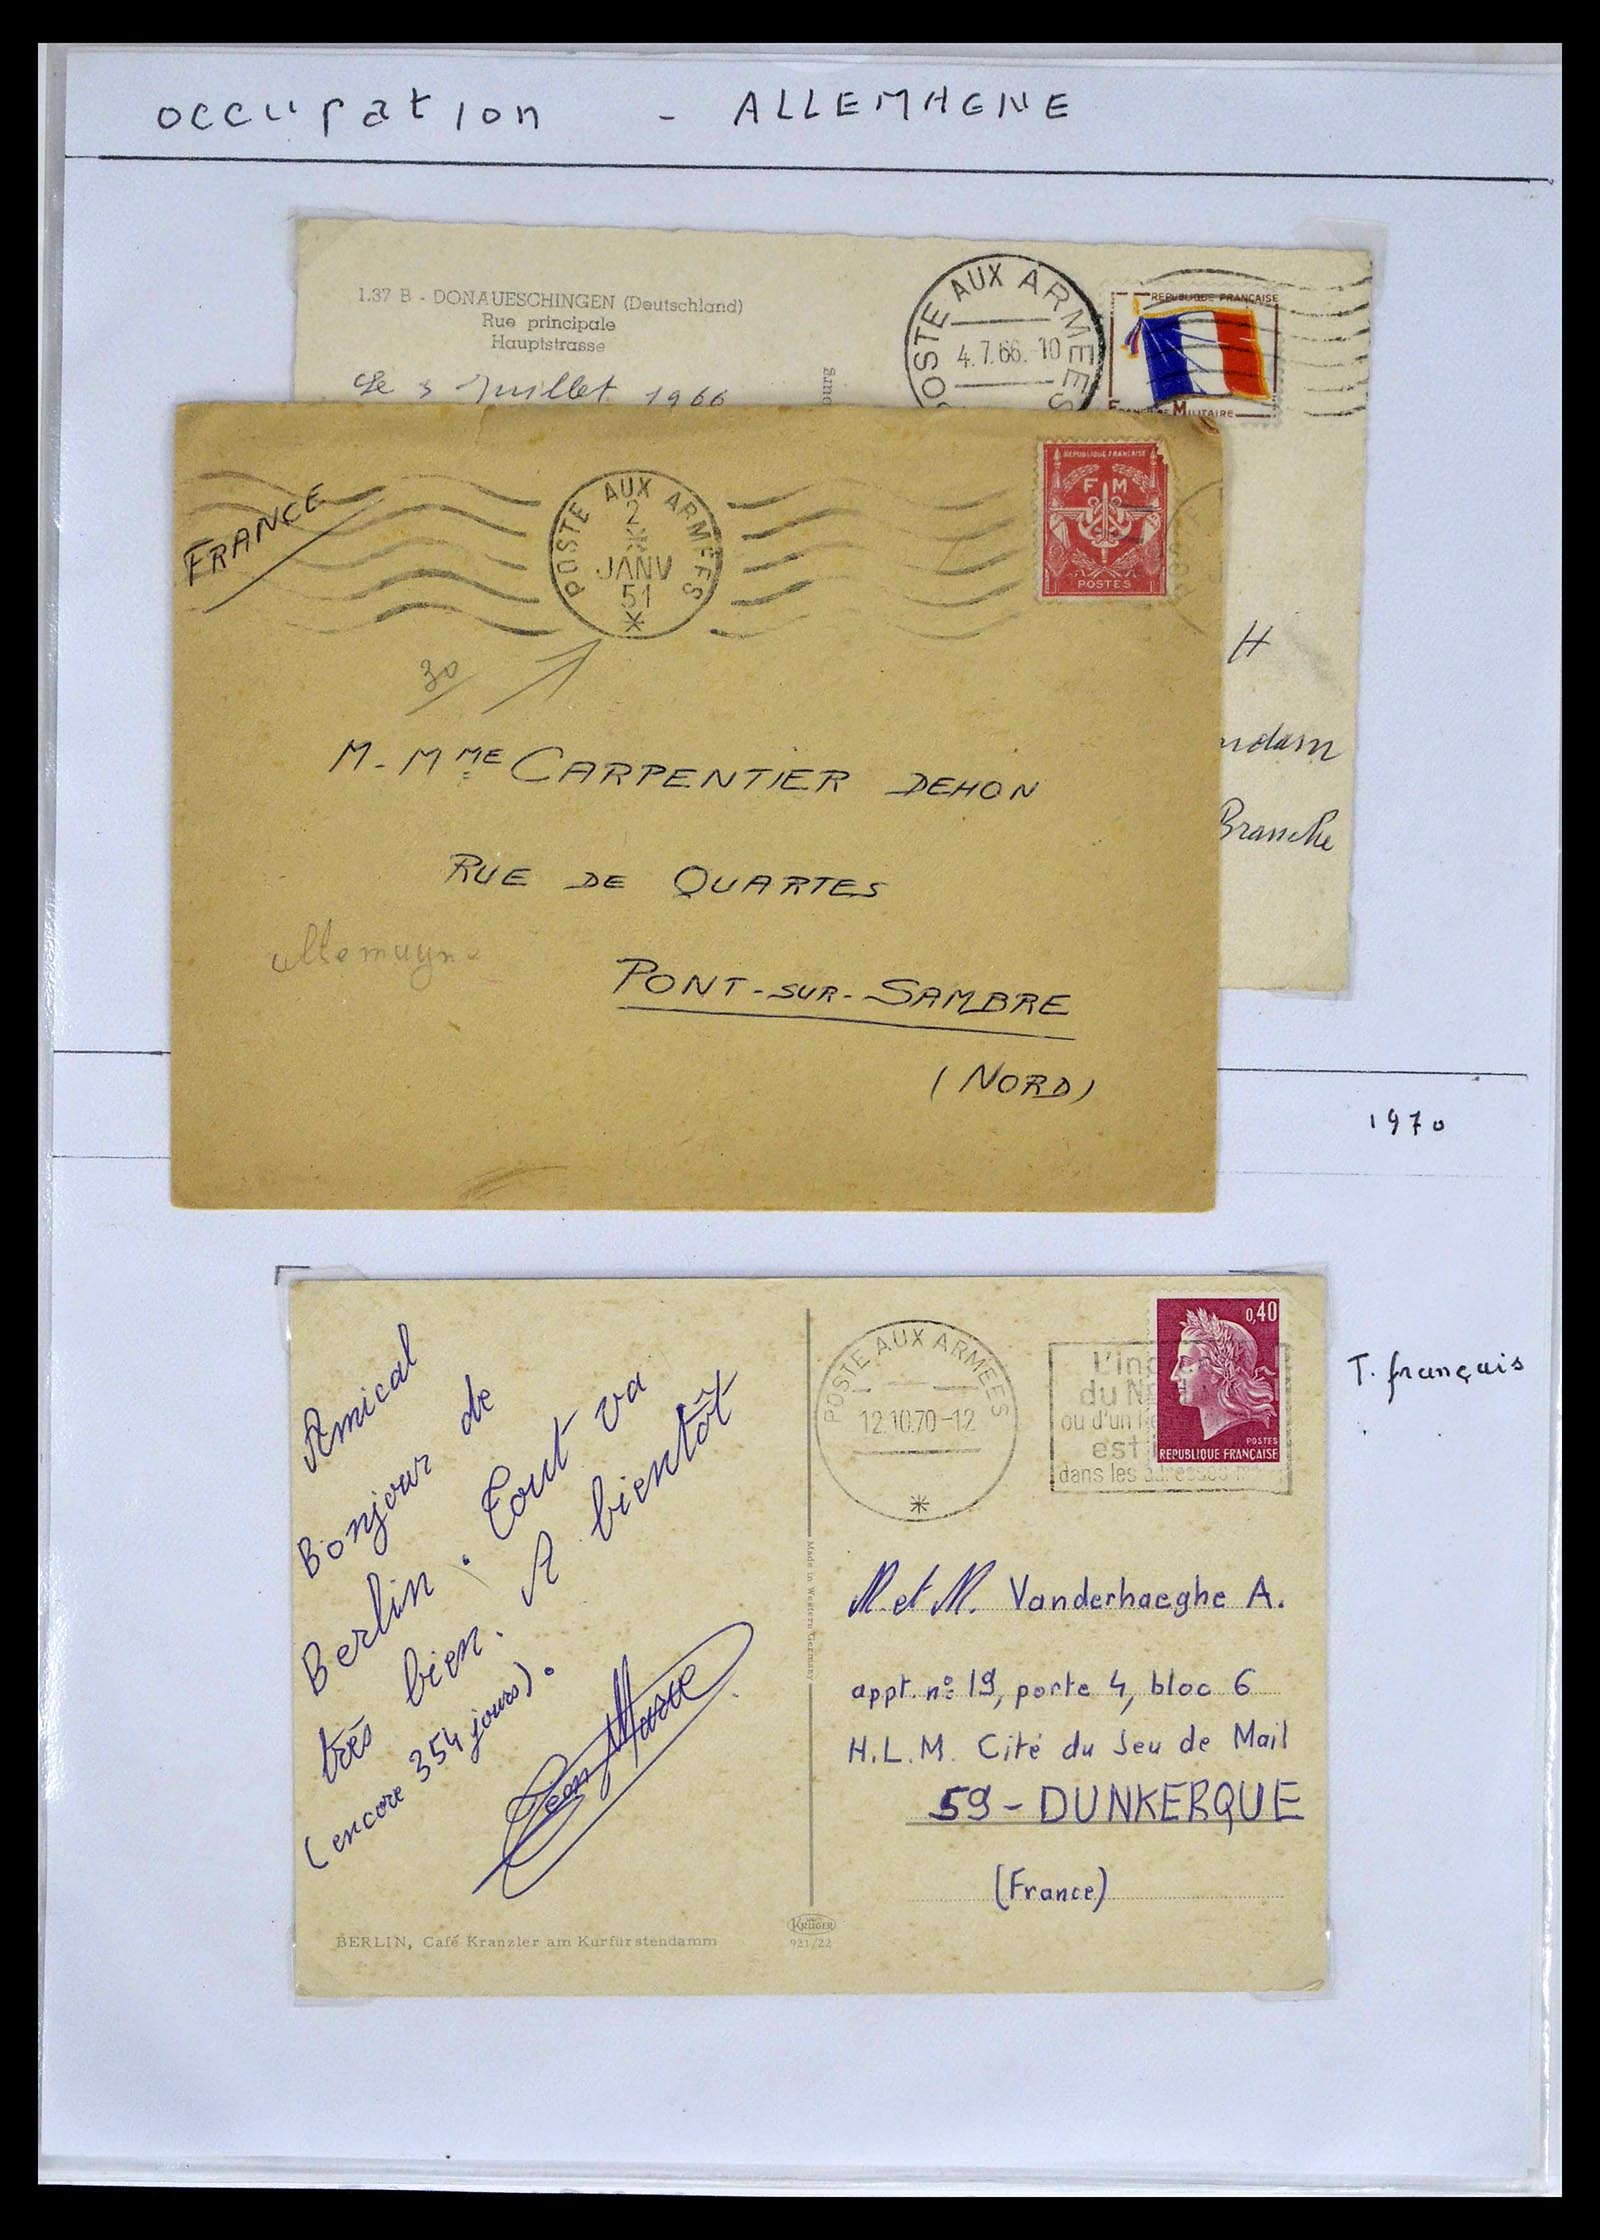 occupation - ALLEMAGNE
1.37 B - DONAUESCHINGEN (Deutschland)
Rue principale
Hauptstrasse
Le 3 Juillet 1966
POSTE AUX ARMEES
4.7.66.-10
REPUBLIQUE FRANÇAISE
FRANCHISE MILITAIRE
H
Branche
FRANCE
POSTE AUX ARMEES
2
JANV
51
*
REPUBLIQUE FRANÇAISE
F M
POSTES
30
M. MME CARPENTIER DEHON
RUE DE QUARTES
allemagne
PONT-SUR-SAMBRE
(NORD)
1970
Amical
Bonjour de
Berlin. Tout va
très bien. A bientôt
(encore 354 jours).
Jean Marie
BERLIN, Café Kranzler am Kurfürstendamm
KRÜGER
921/22
Made in Western Germany
POSTE AUX ARMEES
12.10.70-12
*
du
ou d'un
est
dans les adresses
0,40
POSTES
REPUBLIQUE FRANÇAISE
T. français
M. et M. Vanderhaeghe A.
appt. nº 19, porte 4, bloc 6
H.L.M. Cité du Jeu de Mail
59 - DUNKERQUE
(France)